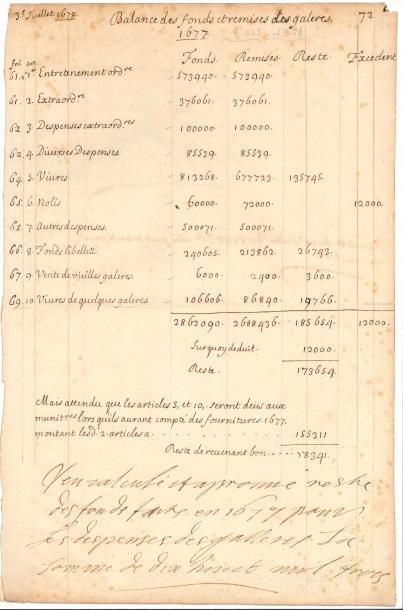 3e Juillet 1678. Balance des fonds et remises des galeres. 72
1677
Fonds. Remises. Reste. Excedent
fol. art.
61. 1er Entretenement ordre 573940. 573940.
61. 2. Extraordre 376061. 376061.
62 3. Despenses extraordres 100000. 100000.
62. 4. Diverses Despenses 85539. 85539.
64. 5. Vivres 813268. 677723. 135745.
65. 6. Nolis 60000. 72000. 12000.
65. 7. Autres despenses. 500071. 500071.
66. 8. Fonds libellez 240605. 213862. 26743.
67. 9. Vente de vieilles galeres. 6000. 2400. 3600.
69. 10. Vivres de quelques galeres. 106606. 86840. 19766.
2862090. 2688436. 185654. 12000.
Sur quoy deduit. 12000.
Reste. 173654.
Mais attendu que les articles 5, et 10, seront deus aux
munitres lors qu'ils auront compté des fournitures. 1677.
montant lesd. 2. articles a 155311
Reste de revenant bon 18341.
J'eu calculé et aprouvé reste
des fonds faits en 1677 pour
les despenses des galleres La
somme de dix huict mil trois